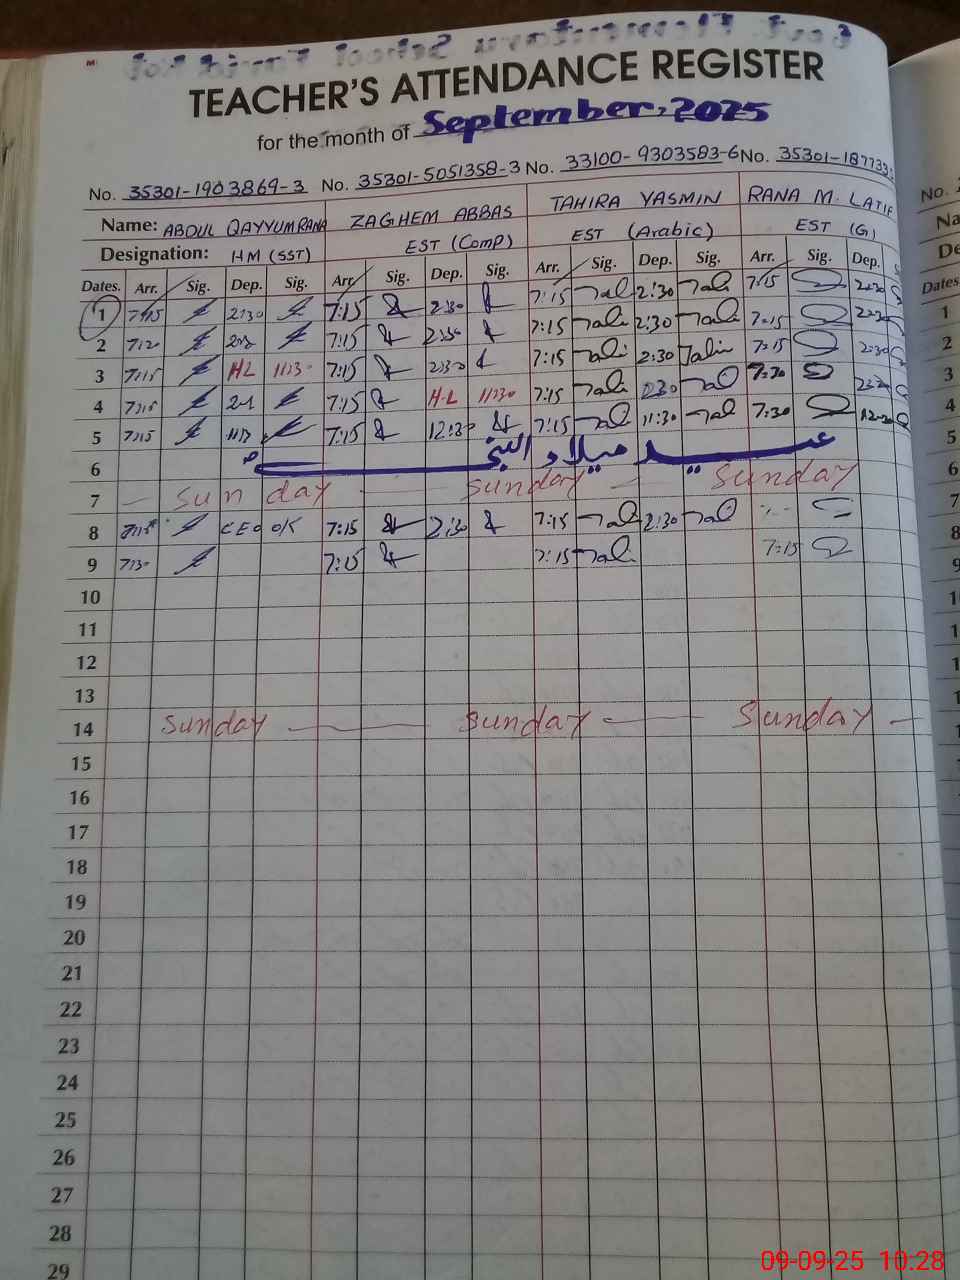 TEACHER'S ATTENDANCE REGISTER
for the month of September, 2025
No. 35301-1903869-3 No. 35301-5051358-3 No. 33100-9303583-6 No. 35301-187733
Name: ABDUL QAYYUM RANA ZAGHEM ABBAS TAHIRA YASMIN RANA M. LATIF
Designation: HM (SST) EST (Comp) EST (Arabic) EST (G)
Dates. Arr. Sig. Dep. Sig. Arr. Sig. Dep. Sig. Arr. Sig. Dep. Sig. Arr. Sig. Dep.
1 7:15 2:30 7:15 2:30 7:15 2:30 7:15 2:30
2 7:15 2:30 7:15 2:30 7:15
3 7:15 HL 11:30 7:15 2:30 7:15 2:30 7:30
4 7:15 7:15 H-L 11:30 7:15 2:30 7:30
5 7:15 7:15 12:30 7:15 11:30
6 عید میلاد النبیؐ
7 Sunday Sunday Sunday
8 CEO O/S 7:15 2:30 7:15 2:30
9 7:30 7:15 7:15 7:15
10
11
12
13
14 Sunday Sunday Sunday
15
16
17
18
19
20
21
22
23
24
25
26
27
28
29
No.
Na
De
Dates
1
2
3
4
5
6
7
8
9
09-09-25 10:28